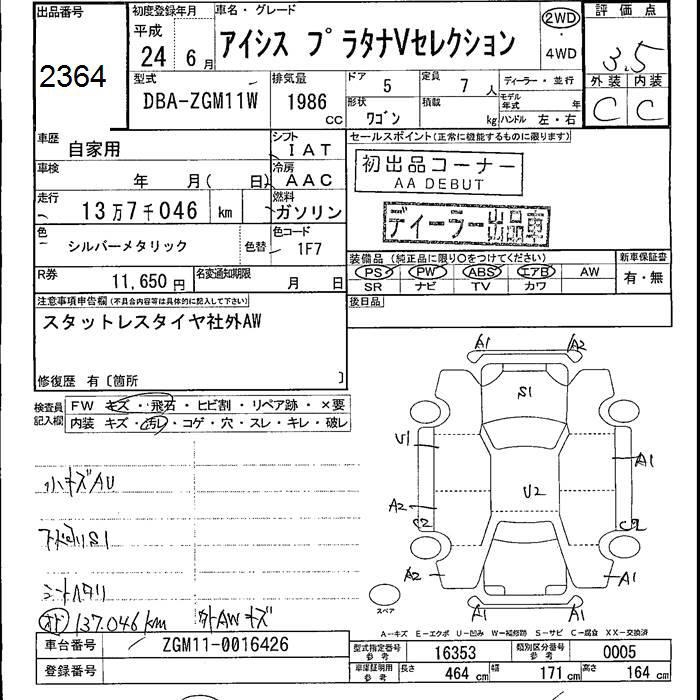 出品番号 初度登録年月 車名・グレード 評価点
2364 平成 24年 6月 アイシス プラタナVセレクション 2WD ・ 4WD 3.5
型式 排気量 ドア 定員 ディーラー・並行 外装 内装
DBA-ZGM11W 1986 cc 5 7人 モデル年式 年 C C
形状 ワゴン 積載 kg ハンドル 左・右
車歴 自家用 シフト IAT セールスポイント(正常に機能するものに限ります)
車検 年 月( 日) 冷房 AAC 初出品コーナー
AA DEBUT
走行 13万7千046 km 燃料 ガソリン ディーラー出品車
色 シルバーメタリック 色替 色コード 1F7
装備品 (純正品に限り○をつけてください) 新車保証書
R券 11,650円 名変通知期限 月 日 PS PW ABS エアB AW 有・無
SR ナビ TV カワ
注意事項申告欄(不具合内容等は具体的に記入して下さい) 後日品
スタットレスタイヤ社外AW
修復歴 有〔箇所 〕
検査員記入欄 FW キズ・飛石・ヒビ割・リペア跡・×要
内装 キズ・汚れ・コゲ・穴・スレ・キレ・破レ
A1 A2
S1
U1 A1
U2
A2
C2 C2
A2 A1
スペア A1 A1
小キズAU
下廻りS1
シートヘタリ
137.046km 外AWキズ
A-キズ E-エクボ U-凹み W-補修跡 S-サビ C-腐食 XX-交換済
車台番号 ZGM11-0016426 型式指定番号 参考 16353 類別区分番号 参考 0005
登録番号 車庫証明用 参考 長さ 464 cm 幅 171 cm 高さ 164 cm